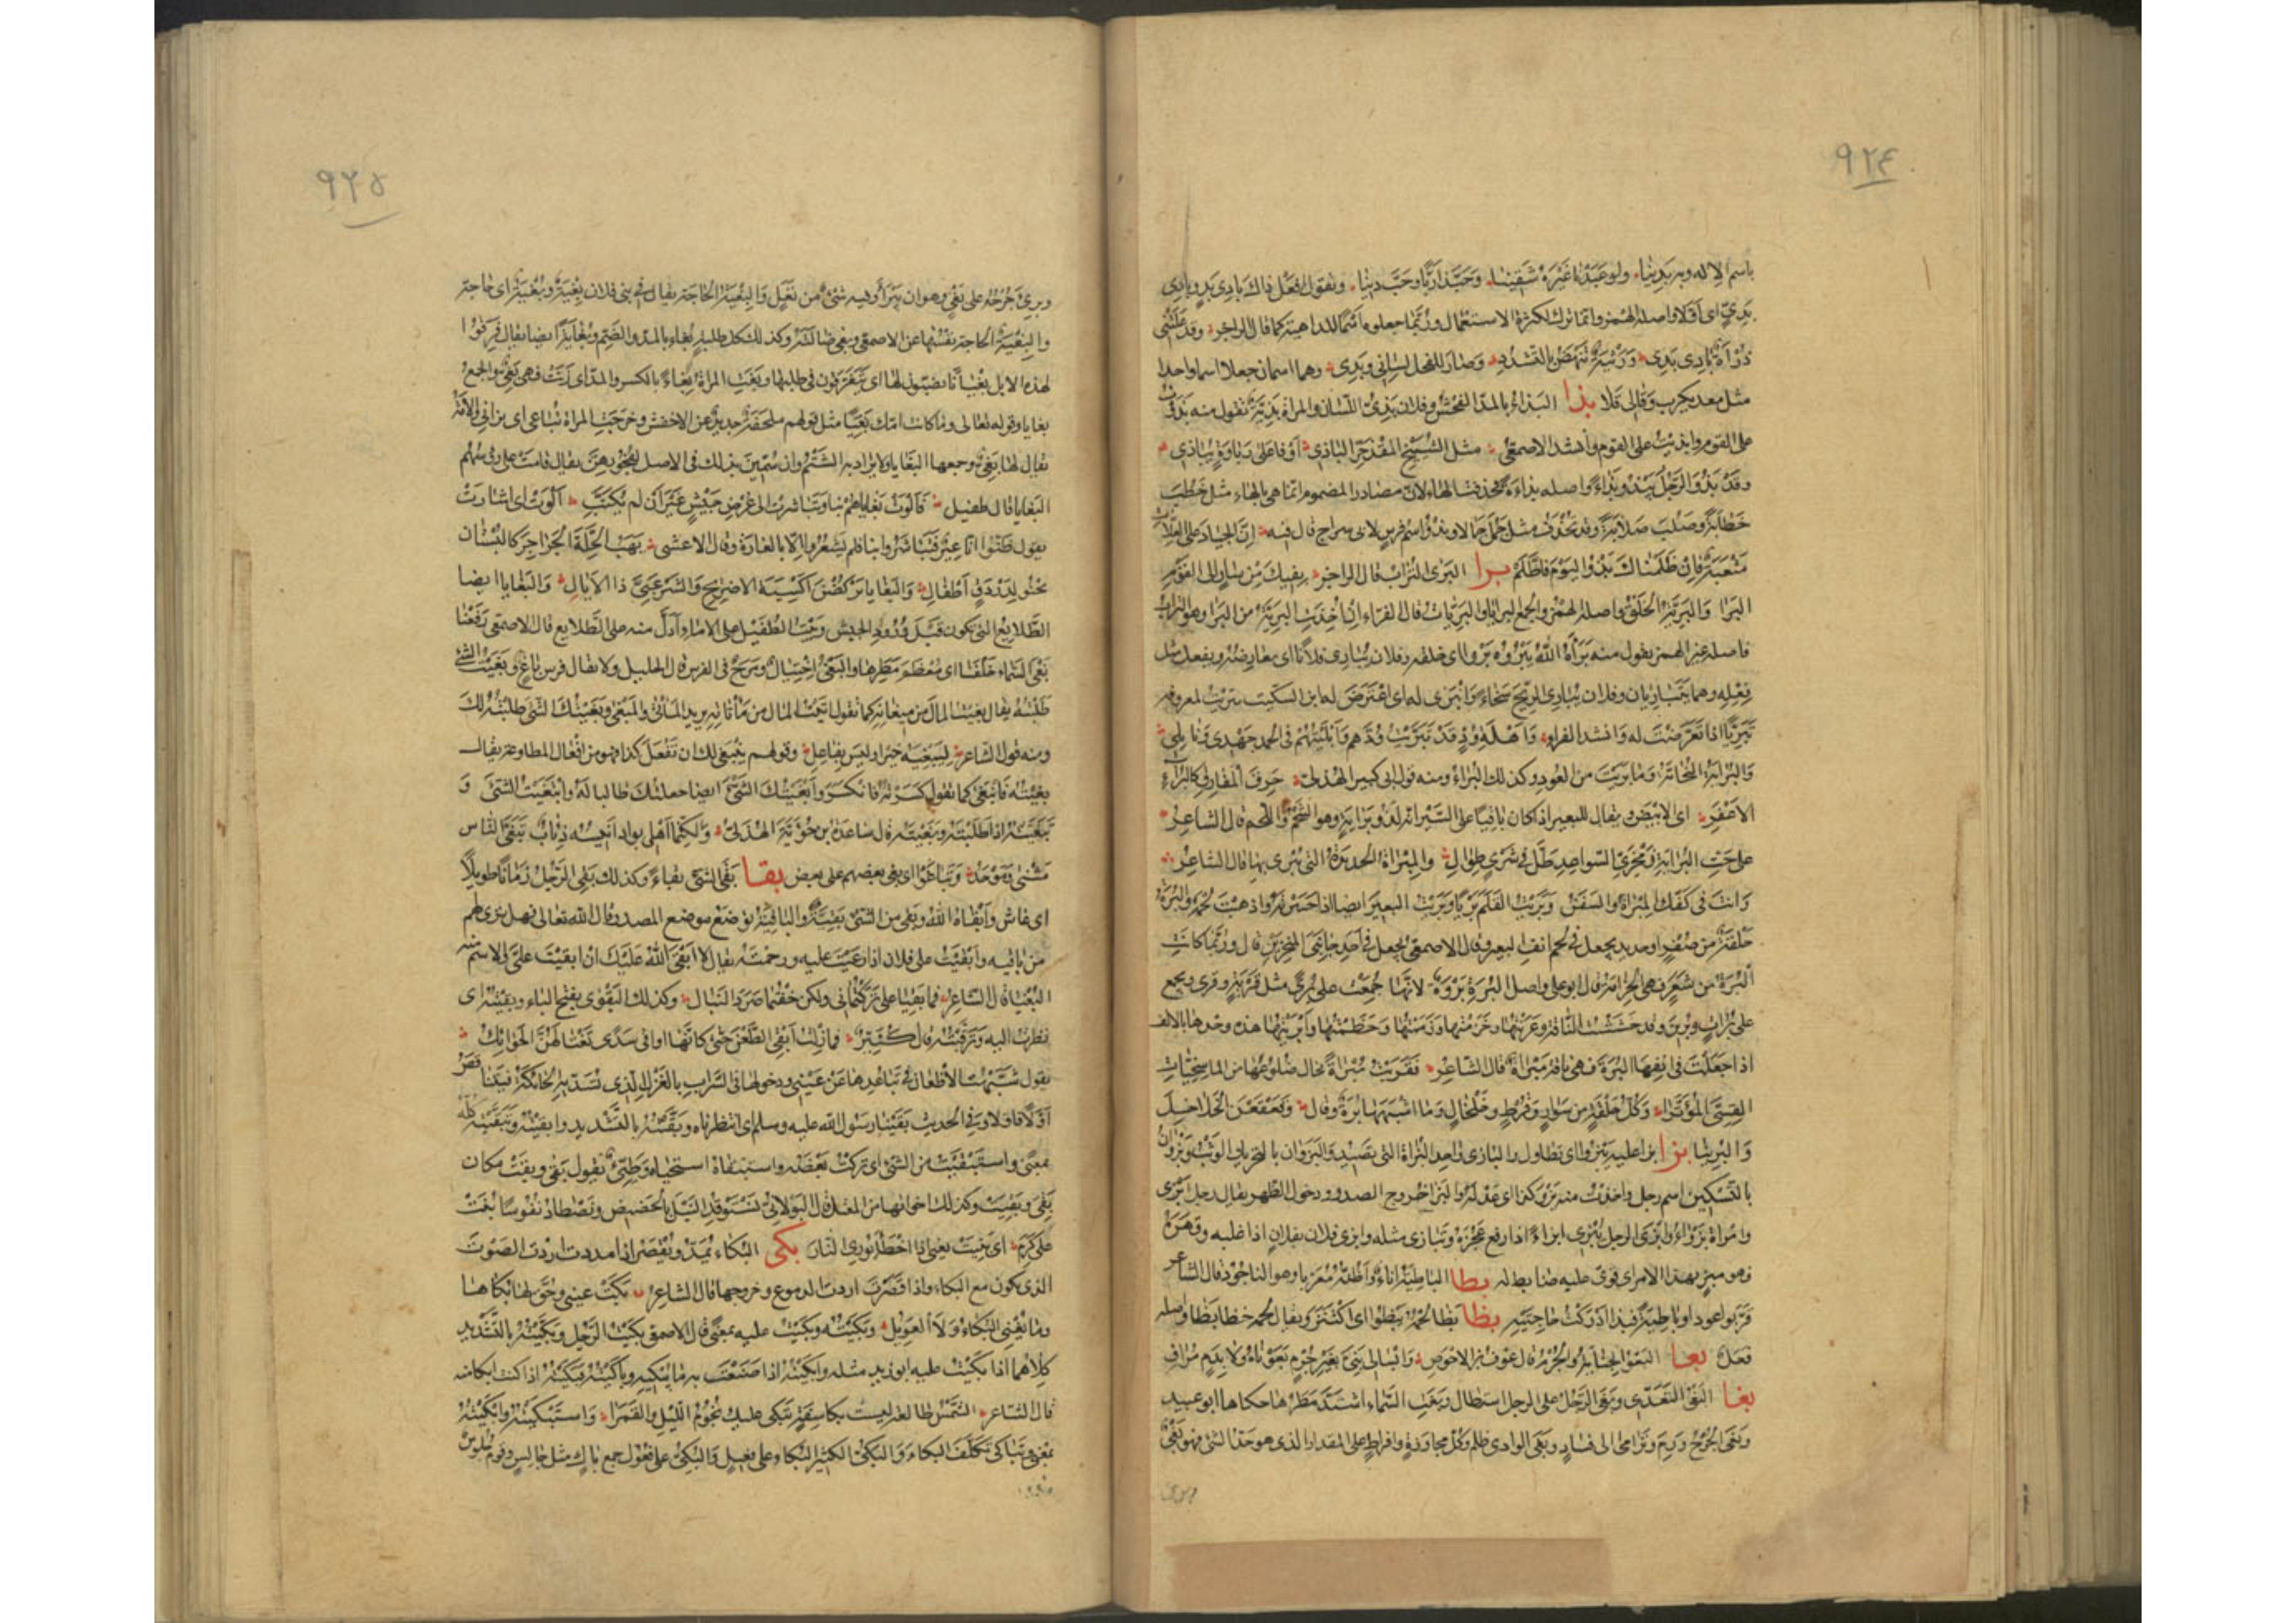 ٩٢٤
باسم الاله وبه بدينا ولو عبدنا غيره شقينا وحبذا ربا وحب دينا وتقول افعل ذاك بادى بد وبادى
بدى اى اولا واصله الهمز وانما ترك لكثرة الاستعمال وربما جعلوه اسما للداهية كما قال الراجز وقد علتنى
ذرأة بادى بدى ورثية تنهض بالتشدد وصار للفحل لسانى ويدى وهما اسمان جعلا اسما واحدا
مثل معديكرب وقالى قلا بذا البذاء بالمد الفحش وفلان بذى اللسان والمراة بذية تقول منه بذوت
على القوم وابذيت على القوم وانشد الاصمعى مثل الشيخ المقذحر الباذى اوفى على رباوة يباذى
وقد بذو الرجل يبذو بذاء واصله بذاءة فحذفت الهاء لان مصادر المضموم انما هى بالهاء مثل خطب
خطابة وصلب صلابة وقد تحذف مثل جمل جمالا وبذو اسم فرس لابى سراج قال فيه ان الجياد على العلات
متعبة فان ظلمناك بذو اليوم فاظلم برا البرى التراب قال الراجز بفيك من سار الى القوم
البرا والبرية الخلق واصله الهمز والجمع البرايا والبريات قال الفراء ان اخذت البرية من البرا وهو التراب
فاصله غير الهمز تقول منه براه الله يبروه بروا اى خلقه وفلان يبارى فلانا اى يعارضه ويفعل مثل
فعله وهما يتباريان وفلان يبارى الريح سخاء وانبرى له اى اعترض له ابن السكيت تبريت لمعروفه
تبريا اذا تعرضت له وانشد الفراء واهلة ود قد تبريت ودهم وابليتهم فى الحمد جهدى ونايلى
والبراية النحاتة وما بريت من العود وكذلك البراء ومنه قول ابى كبير الهذلى حرق المفارق كالبراء
الاعفر اى الابيض ويقال للبعير اذا كان باقيا على السير انه لذو براية وهو الشحم واللحم قال الشاعر
على حت البراية زمخرى السواعد ظل فى شرى طوال والمبراة الحديدة التى يبرى بها قال الشاعر
وانت فى كفك المبراة والسفن وبريت القلم بريا وبريت البعير ايضا اذا حسرته واذهبت لحمه والبرة
حلقة من صفر او حديد يجعل فى لحم انف البعير وقال الاصمعى تجعل فى احد جانبى المنخرين قال وربما كانت
البرة من شعر فهى الخزامة قال ابو على واصل البرة بروة لانها جمعت على برى مثل قرية وقرى ويجمع
على برات وبرين وقد خششت الناقة وعرنتها وخزمتها وزممتها وخطمتها وابريتها هذه وحدها بالالف
اذا جعلت فى انفها البرة فهى ناقة مبراة قال الشاعر فقربت مبراة تخال ضلوعها من الماسخيات
القسى الموترا وكل حلقة من سوار وقرط وخلخال وما اشبهها برة وقال وقعقعن الخلاخل
والبرينا بزا بزا عليه يبزو اى تطاول والبازى واحد البزاة التى تصيد والبزوان بالتحريك الوثب وبزوان
بالتسكين اسم رجل واخذت منه بزو كذا اى عدله والبزا خروج الصدر ودخول الظهر يقال رجل ابزى
وامراة بزواء وابزى الرجل يبزى ابزاء اذا رفع عجزه وتبازى مثله وابزى فلان بفلان اذا غلبه وقهره
وهو مبز بهذا الامر اى قوى عليه ضابط له بطا الباطية اناء واظنه معربا وهو الناجود قال الشاعر
قربوا عودا وباطية فبذا ادركت حاجتيه بظا بظا لحمه يبظوا اى اكتنز ويقال لحمه خظا بظا واصله
فعل بعا البعو الجناية والجرم قال عوف بن الاحوص وابسالى بنى بغير جرم بعوناه ولا بدم مراق
بغا البغى التعدى وبغى الرجل على الرجل استطال وبغت السماء اشتد مطرها حكاها ابو عبيد
وبغى الجرح ورم وترامى الى فساد وبغى الوادى ظلم وكل مجاوزة وافراط على المقدار الذى هو حد الشى فهو بغى
وبرى
٩٢٥
وبرئ جرحه على بغى وهو ان يبرأ وفيه شئ من نغل والبغية الحاجة يقال فى بنى فلان بغية وبغية اى حاجة
والبغية الحاجة نفسها عن الاصمعى وبغى ضالته وكذلك كل طلبة بغاء بالمد والضم وبغاية ايضا يقال فرقوا
لهذه الابل بغيانا يضبون لها اى يتفرقون فى طلبها وبغت المراة بغاء بالكسر والمد اى زنت فهى بغى والجمع
بغايا وقوله تعالى وما كانت امك بغيا مثل قولهم ملحفة جديد عن الاخفش وخرجت المراة تباغى اى تزانى والامة
يقال لها بغى وجمعها البغايا ولا يراد به الشتم وان سمين بذلك فى الاصل لفجورهن يقال قامت على روسهم
البغايا قال طفيل فالوت بغاياهم بنا وتباشرت الى عرض جيش غير ان لم يكتب الوت اى اشارت
يقول ظنوا انا عير فتباشروا بنا فلم يشعروا الا بالغارة وقال الاعشى يهب الجلة الجراجر كالبستان
تحنو لدردق اطفال والبغايا يركضن اكسية الاضريج والشرعبى ذا الاذيال والبغايا ايضا
الطلايع التى تكون قبل ورود الجيش وبيت الطفيل على الاماء ادل منه على الطلايع قال الاصمعى دفعنا
بغى السماء خلفنا اى معظم مطرها والبغى اختيال ومرح فى الفرس قال الخليل ولا يقال فرس باغ وبغيت الشئ
طلبته يقال بغيت المال من مبغاته كما تقول اتيت المال من ماتاته يريد الماتى والمبغى وبغيتك الشى طلبته لك
ومنه قول الشاعر ليبغيه خيرا وليس بفاعل وقولهم ينبغى لك ان تفعل كذا فهو من افعال المطاوعة يقال
بغيته فانبغى كما تقول كسرته فانكسر وابغيتك الشئ ايضا جعلتك طالبا له وابتغيت الشئ و
تبغيته اذا طلبته وبغيته قال ساعدة بن جوية الهذلى ولكنما اهلى بواد انيسه ذئاب تبغى الناس
مثنى وموحد وتباغوا اى بغى بعضهم على بعض بقا بقى الشى بقاء وكذلك بقى الرجل زمانا طويلا
اى عاش وابقاه الله وبقى من الشئ بقية والباقية توضع موضع المصدر وقال الله تعالى فهل ترى لهم
من باقيه وابقيت على فلان اذا رعيت عليه ورحمته يقال لا ابقى الله عليك ان ابقيت على والاسم منه
البقيا قال الشاعر فما بقيا على تركتمانى ولكن خفتما صرد النبال وكذلك البقوى بفتح الباء وبقيته اى
نظرت اليه وترقبته قال كثير فما زلت ابقى الظعن حتى كانها اواقى سدى تغتالهن الحوائك
يقول شبهت الاظعان فى تباعدها عن عينى ودخولها فى السراب بالغزل الذى تسديه الحائكة فيتناقص
اولا فاولا وفى الحديث بقينا رسول الله عليه وسلم اى انتظرناه وبقيته بالتشديد وابقيته وتبقيته كله
بمعنى واستبقيت من الشئ اى تركت بعضه واستبقاه استحياه وطيئ تقول بقى وبقت مكان
بقى وبقيت وكذلك اخواتها من المعتل قال البولانى نستوقد النبل بالحضيض ونصطاد نفوسا بنت
على كرم اى بنيت يعنى اذا اخطا يورى النار بكى البكاء يمد ويقصر اذا مددت اردت الصوت
الذى يكون مع البكاء واذا قصرت اردت الدموع وخروجها قال الشاعر بكت عينى وحق لها بكاها
وما يغنى البكاء ولا العويل وبكيته وبكيت عليه بمعنى قال الاصمعى بكيت الرجل وبكيته بالتشديد
كلاهما اذا بكيت عليه ابو زيد مثله وابكيته اذا صنعت به ما يبكيه وباكيته فبكيته اذا كنت ابكا منه
قال الشاعر الشمس طالعة ليست بكاسفة تبكى عليك نجوم الليل والقمرا واستبكيته وابكيته
بمعنى وتباكى تكلف البكاء والبكى الكثير البكاء على فعيل والبكى على فعول جمع باك مثل جالس وقوم جلوس